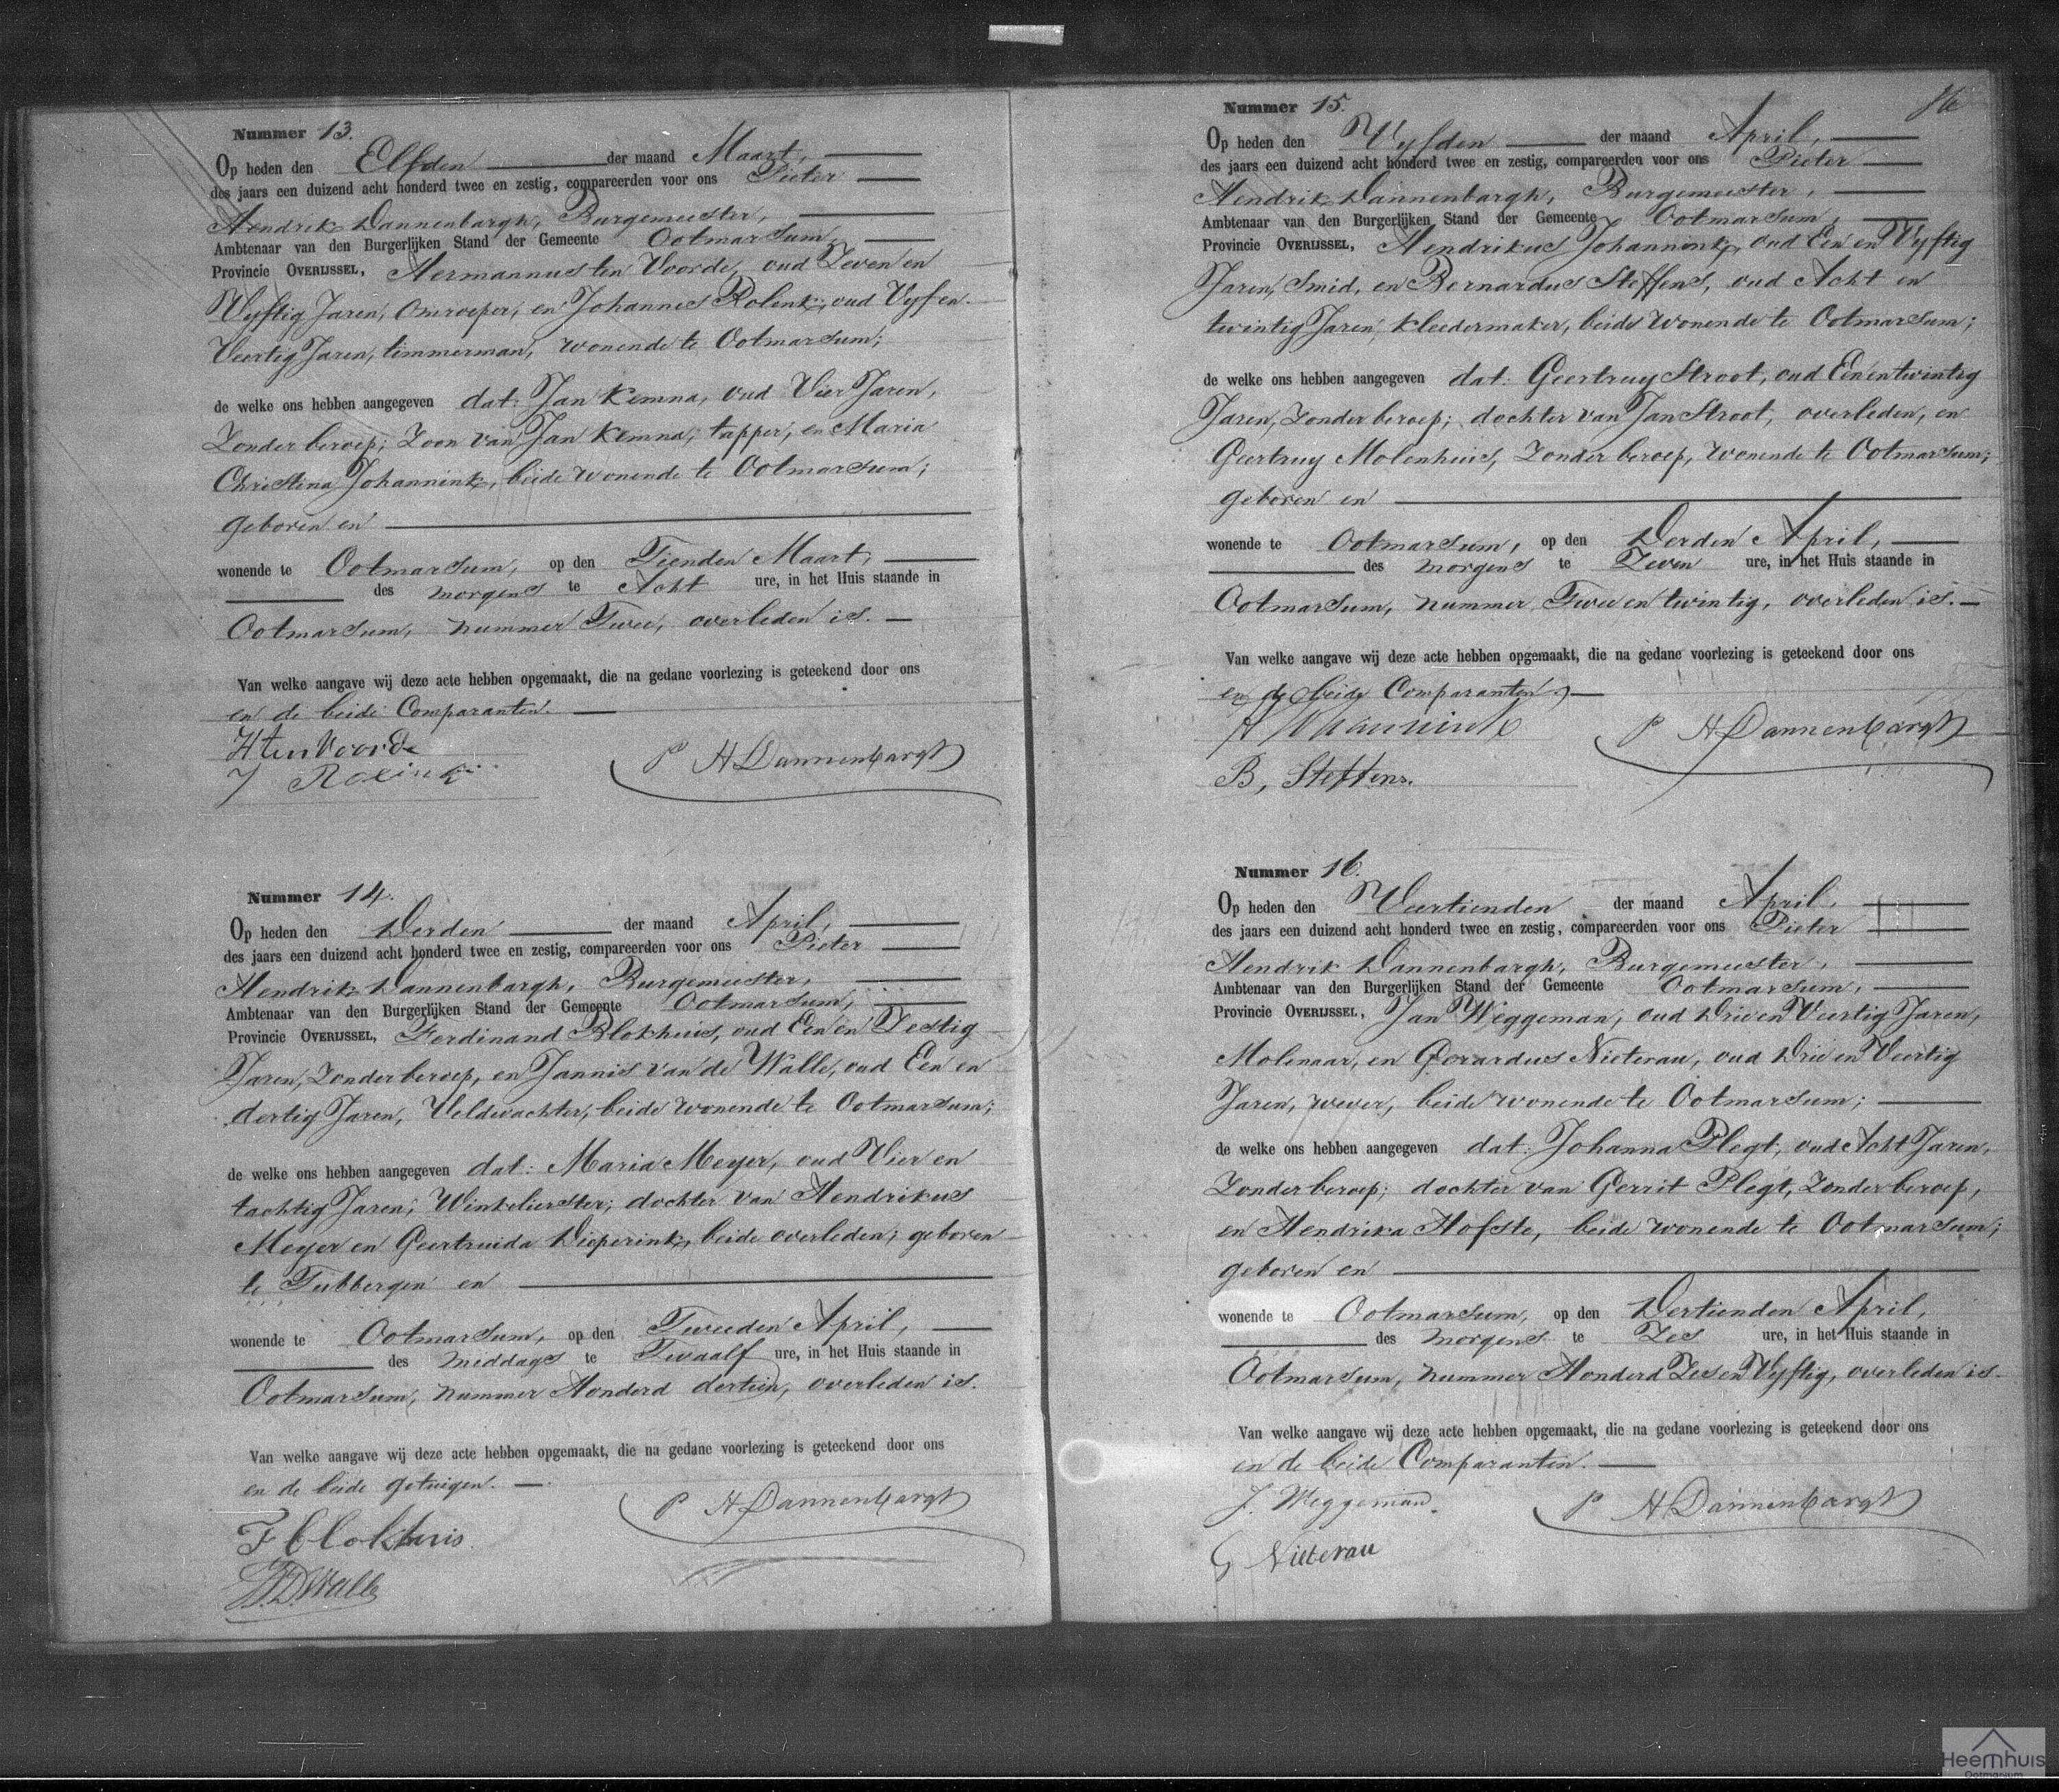 Nummer 13.
Op heden den Elfden der maand Maart,
des jaars een duizend acht honderd twee en zestig, compareerden voor ons Pieter
Hendrik Dannenbargh, Burgemeester,
Ambtenaar van den Burgerlijken Stand der Gemeente Ootmarsum,
Provincie OVERIJSSEL, Hermannus ten Voorde, oud Zeven en
Vyftig Jaren, omroeper, en Johannes Rolink, oud Vyf en
Veertig Jaren, timmerman, wonende te Ootmarsum;
de welke ons hebben aangegeven dat: Jan Kemna, oud Vier Jaren,
Zonder beroep; Zoon van Jan Kemna, tapper, en Maria
Christina Johannink, beide wonende te Ootmarsum;
geboren en
wonende te Ootmarsum, op den Tienden Maart,
des morgens te Acht ure, in het Huis staande in
Ootmarsum, nummer Twee, overleden is.
Van welke aangave wij deze acte hebben opgemaakt, die na gedane voorlezing is geteekend door ons
en de beide Comparanten.
H ten Voorde
J Rolink
P H Dannenbargh
Nummer 14.
Op heden den Derden der maand April,
des jaars een duizend acht honderd twee en zestig, compareerden voor ons Pieter
Hendrik Dannenbargh, Burgemeester,
Ambtenaar van den Burgerlijken Stand der Gemeente Ootmarsum,
Provincie OVERIJSSEL, Ferdinand Blokhuis, oud Een en Zestig
Jaren, Zonder beroep, en Jannis van de Walle, oud Een en
dertig Jaren, Veldwachter, beide wonende te Ootmarsum;
de welke ons hebben aangegeven dat: Maria Meyer, oud Vier en
tachtig Jaren, Winkelierster; dochter van Hendrikus
Meyer en Geertruida Dieperink, beide overleden; geboren
te Tubbergen en
wonende te Ootmarsum, op den Tweeden April,
des middags te Twaalf ure, in het Huis staande in
Ootmarsum, nummer Honderd dertien, overleden is.
Van welke aangave wij deze acte hebben opgemaakt, die na gedane voorlezing is geteekend door ons
en de beide getuigen.
F Blokhuis
P H Dannenbargh
J. D. Walle
Nummer 15.
Op heden den Vyfden der maand April,
des jaars een duizend acht honderd twee en zestig, compareerden voor ons Pieter
Hendrik Dannenbargh, Burgemeester,
Ambtenaar van den Burgerlijken Stand der Gemeente Ootmarsum,
Provincie OVERIJSSEL, Hendrikus Johannink, oud Een en Vyftig
Jaren, Smid, en Bernardus Steffens, oud Acht en
twintig Jaren, kleedermaker, beide wonende te Ootmarsum;
de welke ons hebben aangegeven dat: Geertruy Stroot, oud Een en twintig
Jaren, Zonder beroep; dochter van Jan Stroot, overleden, en
Geertruy Molenhuis, Zonder beroep, wonende te Ootmarsum;
geboren en
wonende te Ootmarsum, op den Derden April,
des morgens te Zeven ure, in het Huis staande in
Ootmarsum, nummer Twee en twintig, overleden is.
Van welke aangave wij deze acte hebben opgemaakt, die na gedane voorlezing is geteekend door ons
en de beide Comparanten
P H Dannenbargh
B, Steffens.
Nummer 16.
Op heden den Veertienden der maand April,
des jaars een duizend acht honderd twee en zestig, compareerden voor ons Pieter
Hendrik Dannenbargh, Burgemeester,
Ambtenaar van den Burgerlijken Stand der Gemeente Ootmarsum,
Provincie OVERIJSSEL, Jan Weggeman, oud Drie en Veertig Jaren,
Molenaar, en Gerardus Nieterau, oud Drie en Veertig
Jaren, wever, beide wonende te Ootmarsum;
de welke ons hebben aangegeven dat: Johanna Plegt, oud Acht Jaren,
Zonder beroep; dochter van Gerrit Plegt, Zonder beroep,
en Hendrika Hofste, beide wonende te Ootmarsum;
geboren en
wonende te Ootmarsum, op den Dertienden April,
des morgens te Zes ure, in het Huis staande in
Ootmarsum, nummer Honderd Zes en Vyftig, overleden is.
Van welke aangave wij deze acte hebben opgemaakt, die na gedane voorlezing is geteekend door ons
en de beide Comparanten.
J. Weggeman.
P H Dannenbargh
G Nieterau
Heemhuis
Ootmarsum